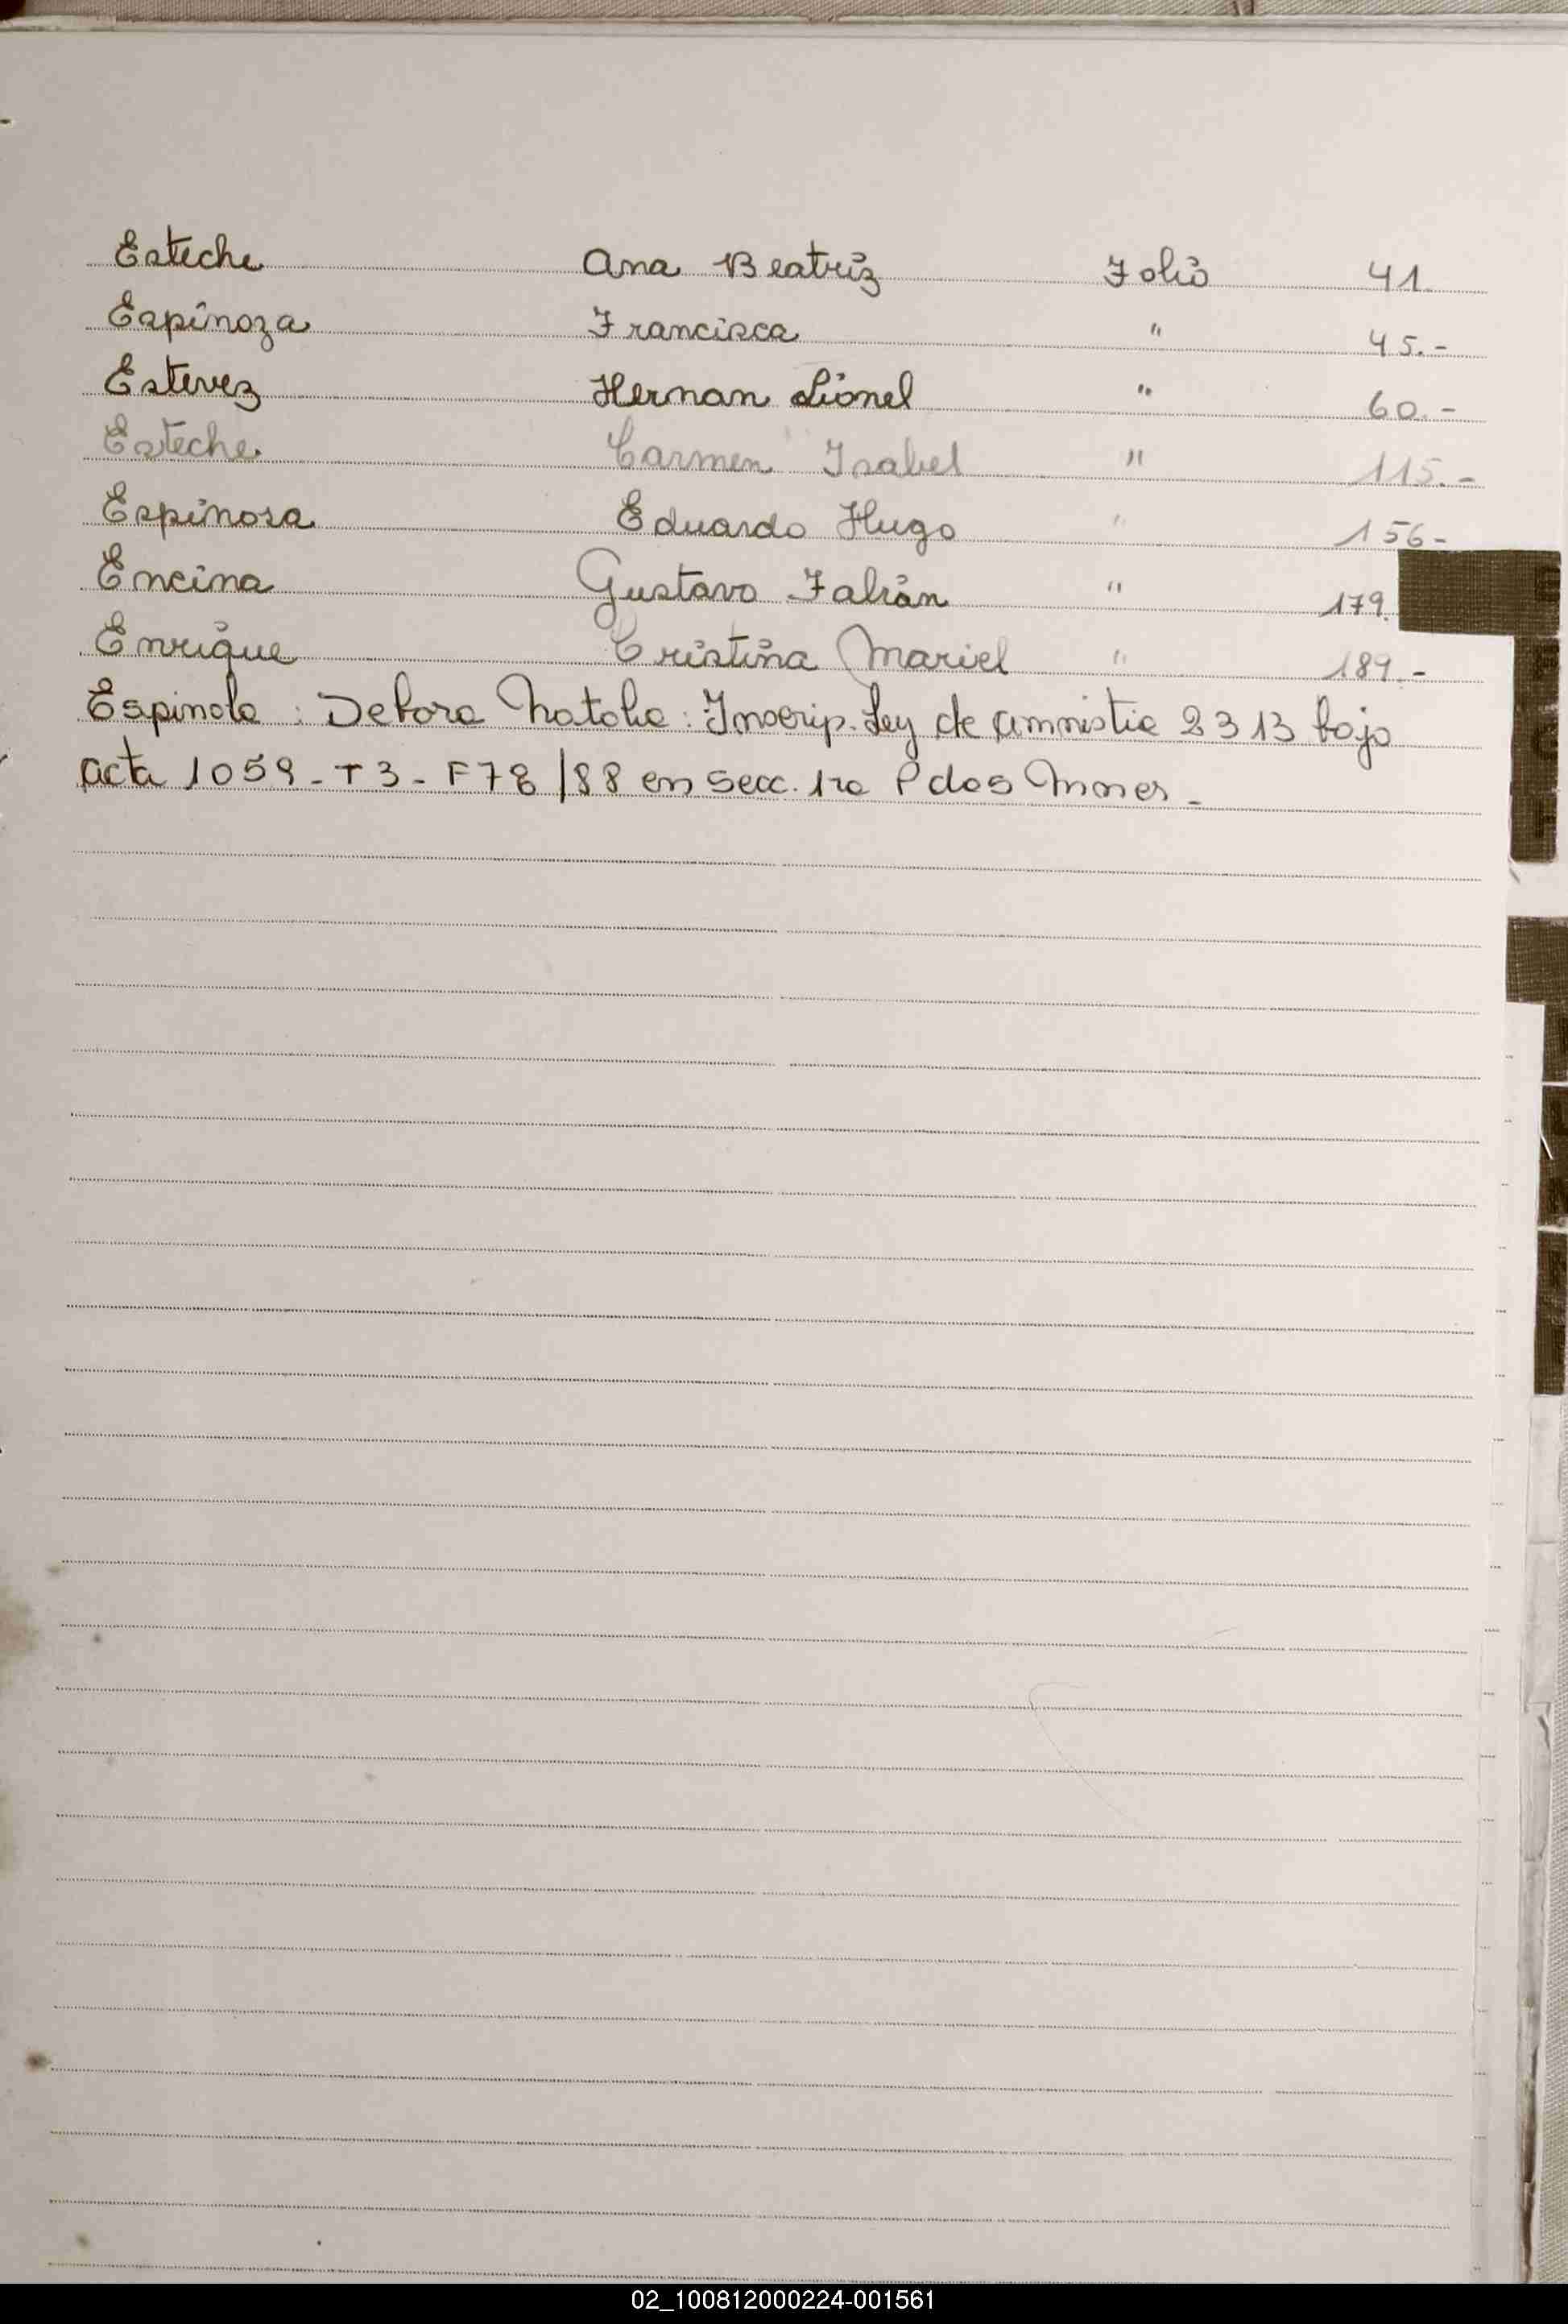 Esteche Ana Beatriz Folio 41.
Espinoza Francisca " 45.-
Estevez Hernan Lionel " 60.-
Esteche Carmen Isabel " 115.-
Espinosa Eduardo Hugo " 156-
Encina Gustavo Fabián " 179.
Enrique Cristina Mariel " 189.-
Espinola : Debora Natalia : Inscrip. Ley de amnistia 2313 bajo
acta 1059 - T 3 - F 78 /88 en secc. 1ra Pdas Mnes -
02_100812000224-001561